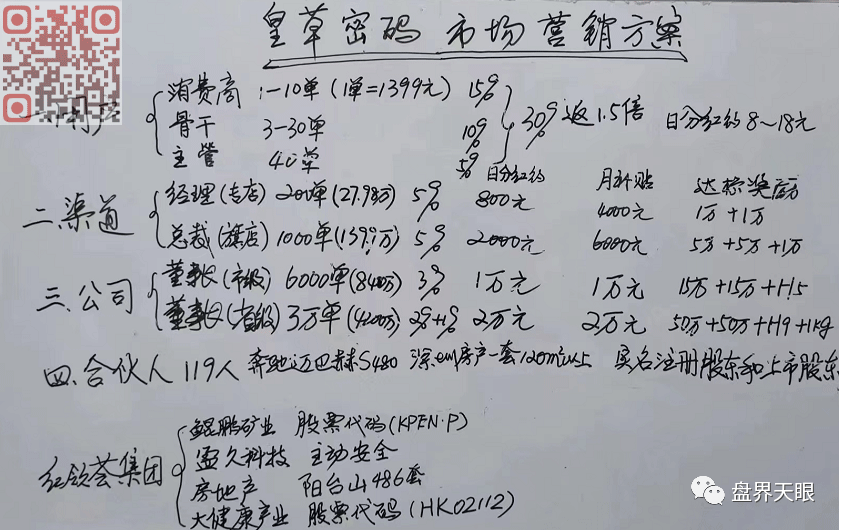 皇草密码 市场营销方案
消费商 :一10单 (1单=1399元) 15%
骨干 3-30单 10%
主管 40单 5%
30% 返1.5倍 日分红约8~18元
二.渠道
日分红约 月补贴 达标奖励
经理(专店) 200单(27.98万) 5% 800元 4000元 1万+1万
总裁(旗店) 1000单(139.9万) 5% 2000元 6000元 5万+5万+1万
三.公司
董事长(市级) 6000单(840万) 3% 1万元 1万元 15万+15万+H5
董事长(省级) 3万单(4200万) 2%+1% 2万元 2万元 50万+50万+H9+1kg
四.合伙人 119人 奔驰迈巴赫S480 深圳房产一套120m²以上 实名注册股东和上市股东
红领荟集团
鲲鹏矿业 股票代码(KPEN·P)
盈久科技 主动安全
房地产 阳台山486套
大健康产业 股票代码(HK02112)
盘界天眼